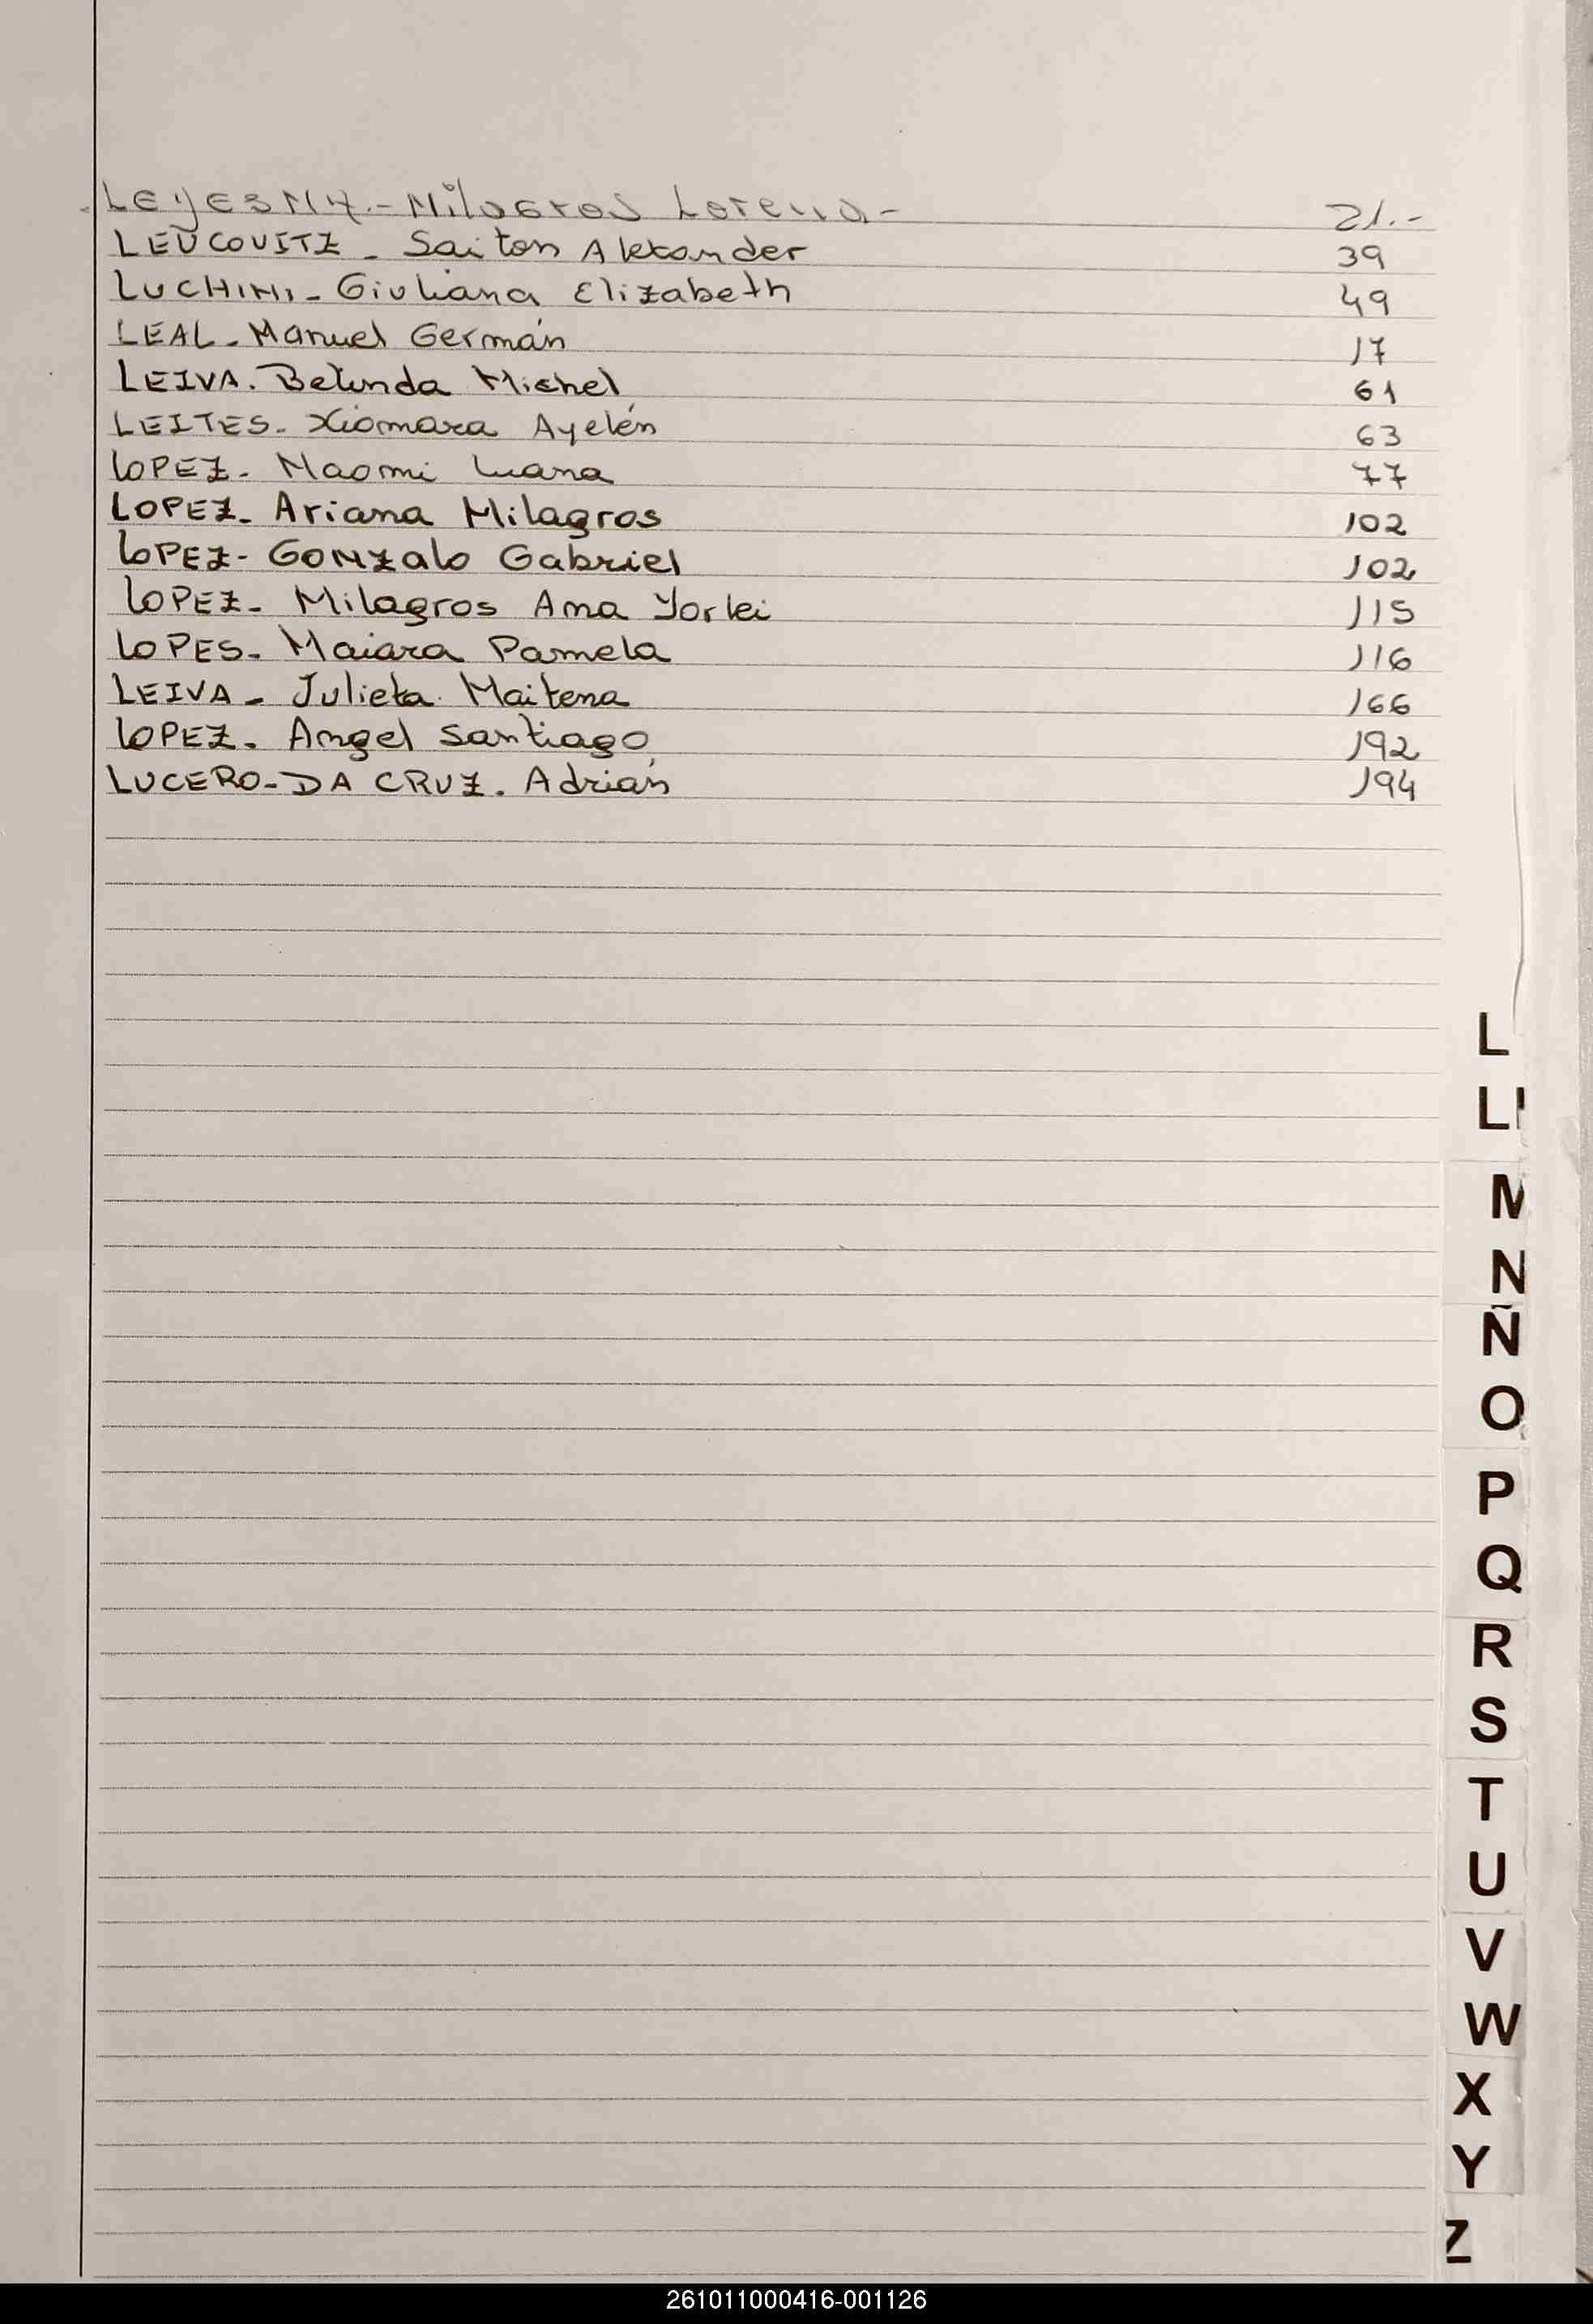 Milagros Lorena- 21.-
LEUCOVITZ - Saiton Alexander 39
LUCHINI - Giuliana Elizabeth 49
LEAL - Manuel Germán 17
LEIVA. Belinda Michel 61
LEITES - Xiomara Ayelén 63
LOPEZ - Naomi Luana 77
LOPEZ - Ariana Milagros 102
LOPEZ - GONZalo Gabriel 102
LOPEZ - Milagros Ana Yorlei 115
LOPES - Maiara Pamela 116
LEIVA - Julieta Maitena 166
LOPEZ. Angel Santiago 192
LUCERO-DA CRUZ. Adrián 194
L
LL
M
N
Ñ
O
P
Q
R
S
T
U
V
W
X
Y
Z
261011000416-001126